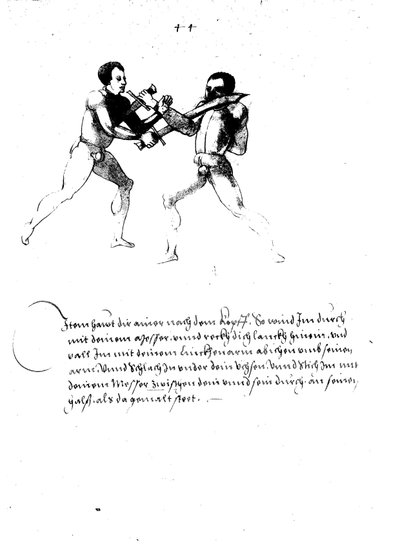 44
Item hawt dir ainer nach dem kopff. So wind Im durch
mit deinem Messer. vnnd reckh dich lanckh hinein. vnd
vall Im mit deinem linckhen arm abichen vmb seinen
arm. Vnnd schlach In vnder dein Vchsen. Vnnd stich Im mit
deinem Messer Zwischen dein vnnd sein durch. an seinen
halß. als da gemalt stet.